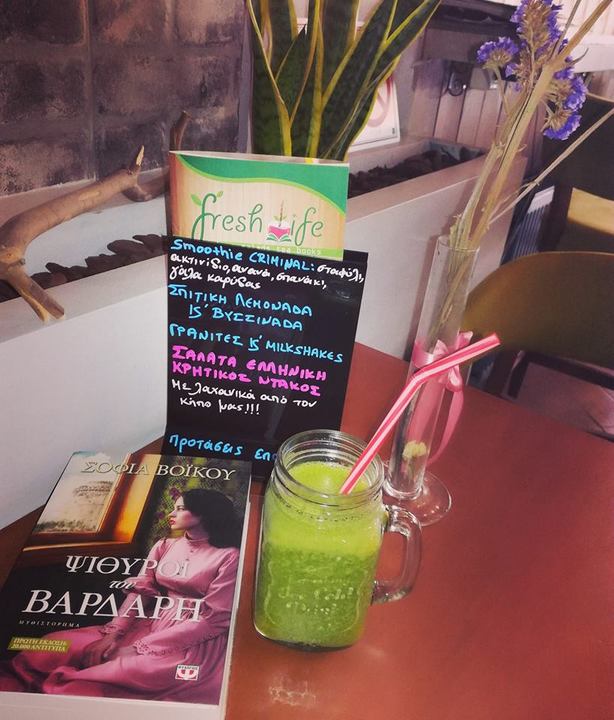 fresh life
Smoothie CRIMINAL: σταφύλι,
ακτινίδιο, ανανά, σπανάκι,
γάλα καρύδας
ΣΠΙΤΙΚΗ ΛΕΜΟΝΑΔΑ
Κ' ΒΥΣΣΙΝΑΔΑ
ΓΡΑΝΙΤΕΣ Κ' MILKSHAKES
ΣΑΛΑΤΑ ΕΛΛΗΝΙΚΗ
ΚΡΗΤΙΚΟΣ ΝΤΑΚΟΣ
Με λαχανικά από τον
κήπο μας!!!
Προτάσεις
ΣΟΦΙΑ ΒΟΪΚΟΥ
ΨΙΘΥΡΟΙ
του
ΒΑΡΔΑΡΗ
ΜΥΘΙΣΤΟΡΗΜΑ
ΠΡΩΤΗ ΕΚΔΟΣΗ:
20.000 ΑΝΤΙΤΥΠΑ